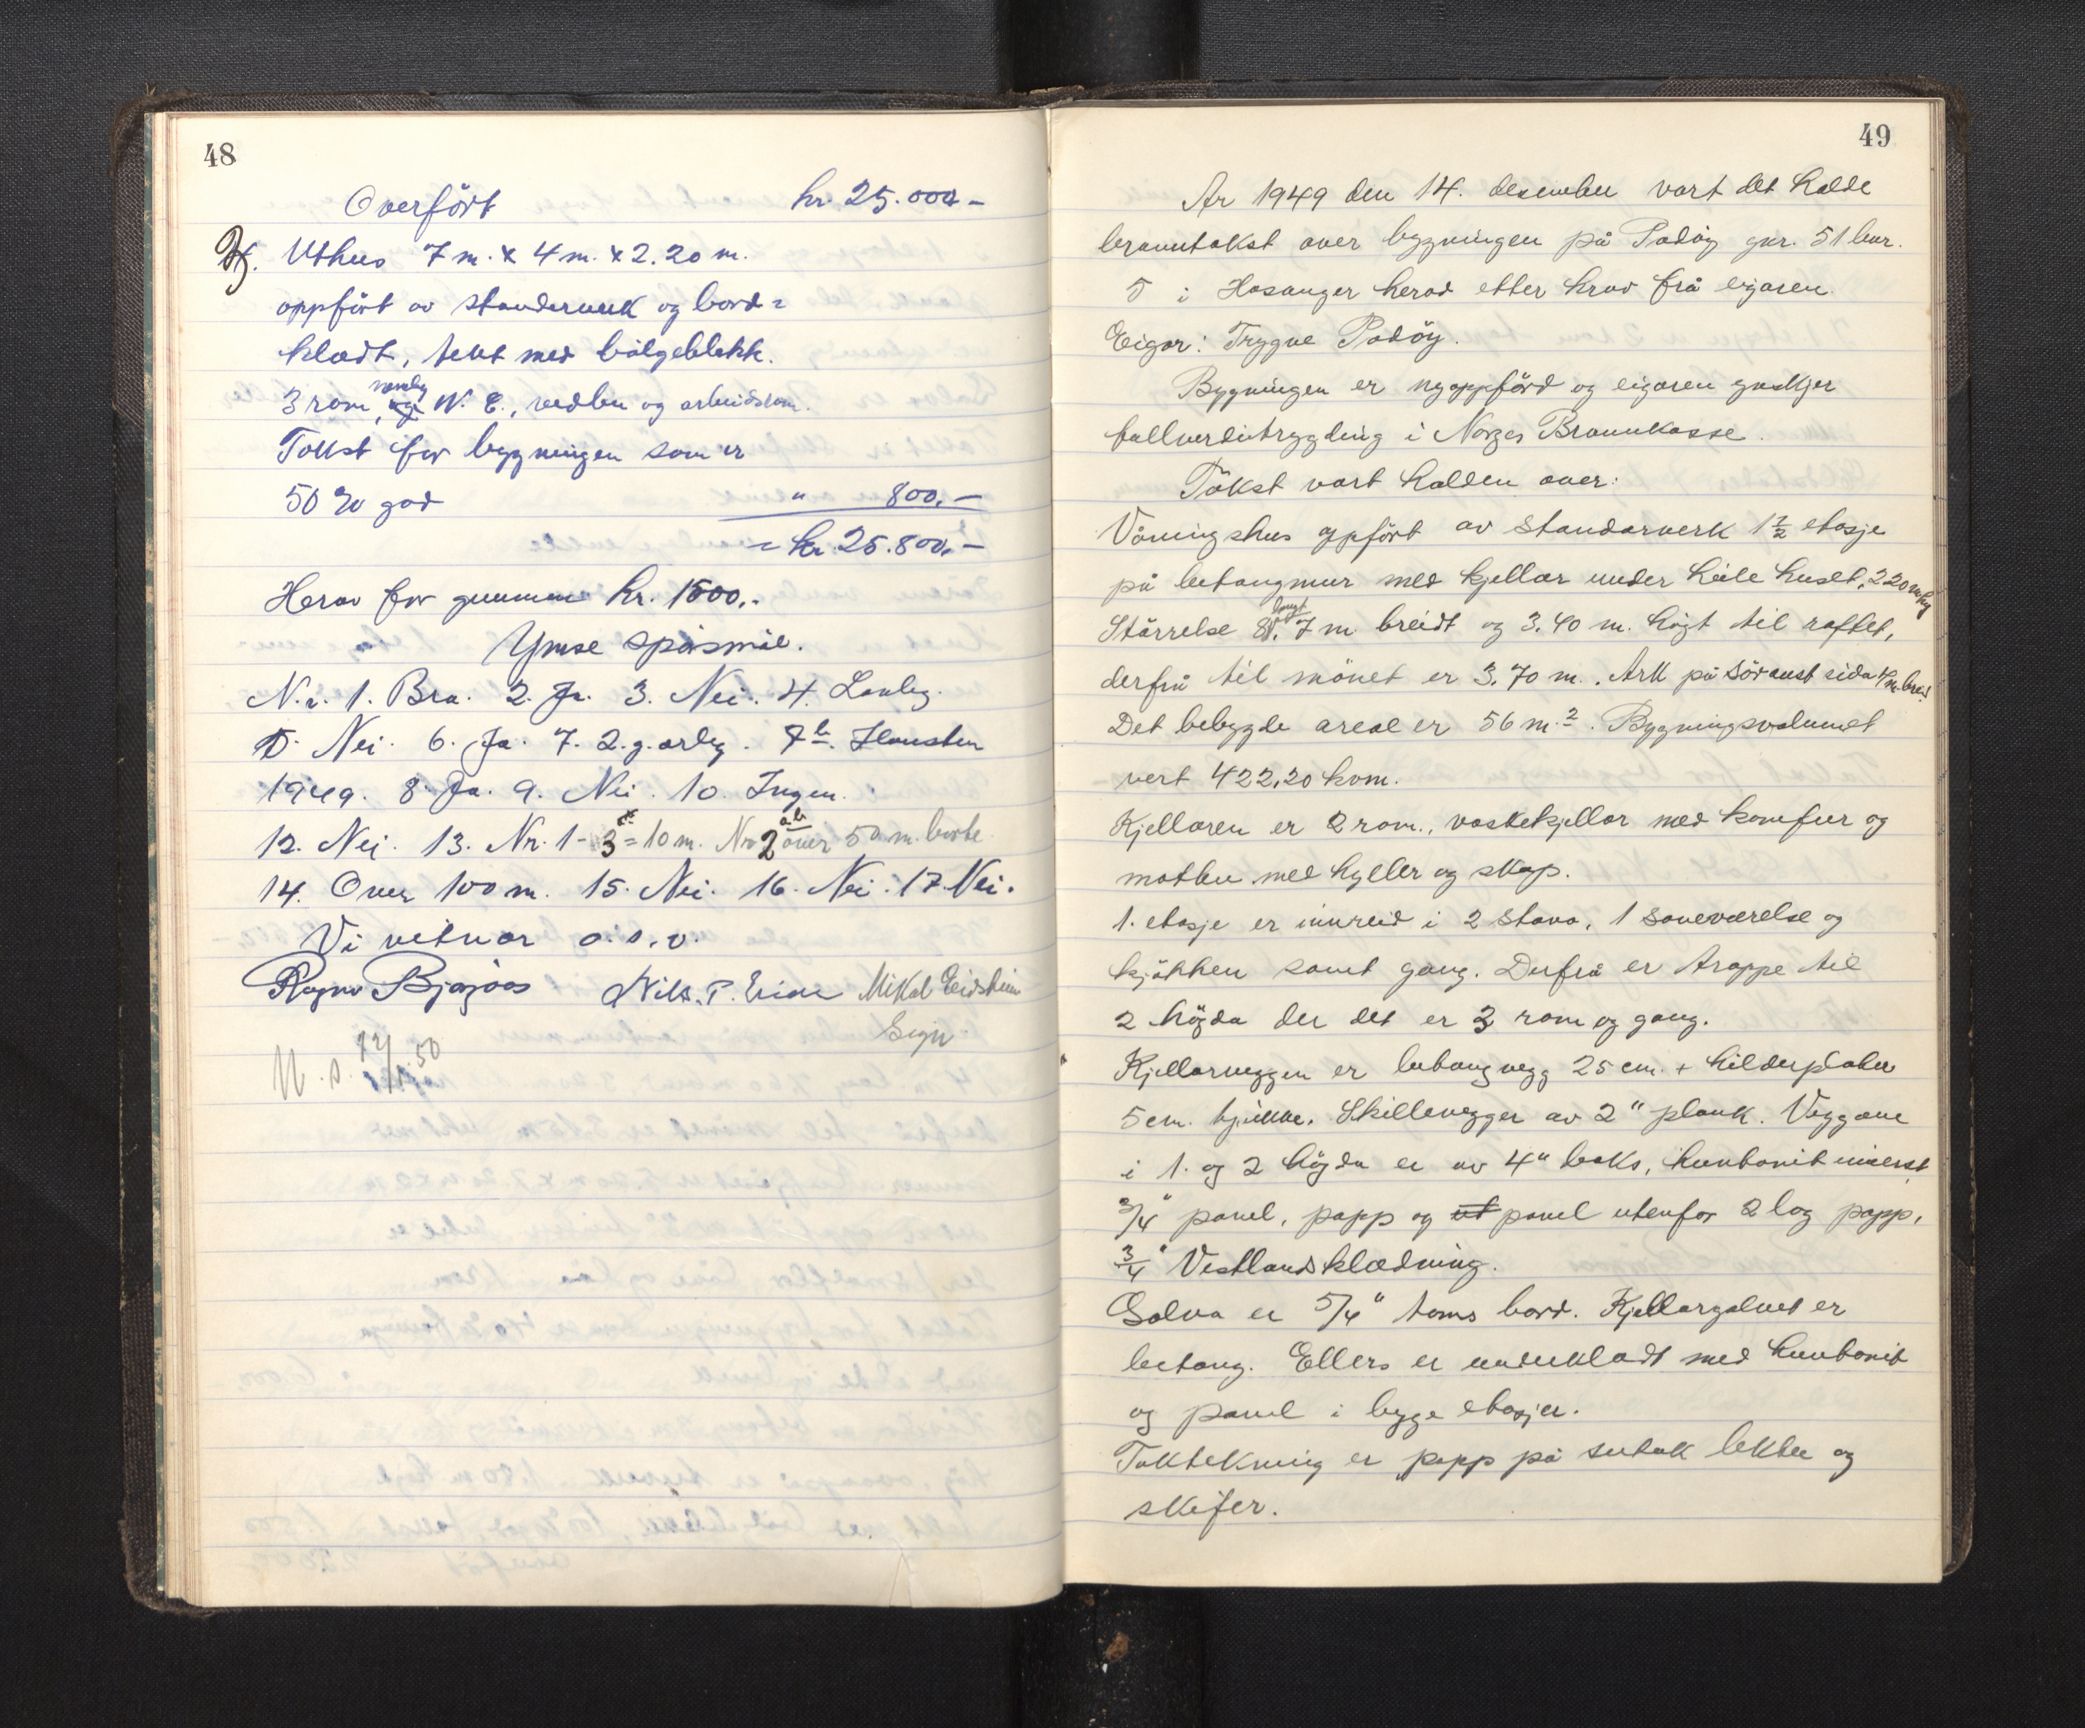 48
Overfört kr. 25.000 -
Uthus 7 m. x 4 m. x 2.20 m.
oppfört av standerverk og bord =
klædt, tekt med bölgeblekk.
3 rom, nemleg W. C., vedbu og arbeidsrom.
Takst for bygningen som er
50 % god " 800.-
= kr. 25.800.-
Herav for grunnmur kr. 1500.-
Ymse spörsmål.
N.r. 1. Bra. 2. Ja. 3. Nei. 4. Lovleg.
5. Nei. 6. Ja. 7. 2.g. årleg. 7b. Hausten
1949. 8. Ja. 9. Nei. 10. Ingen.
12. Nei. 13. Nr. 1 - 3 = 10 m. Nr 2 a.b over 50 m. borte.
14. Over 100 m. 15. Nei. 16. Nei. 17. Nei.
Vi vitnar o.s.v.
Ragnv Bjørgaas Nils. P. Eide Mikal Eidsheim
Sign.
U. s. 12/1.50
49
År 1949 den 14. desember vart det halde
branntakst over bygningen på Padöy gnr. 51 bnr.
5 i Hosanger herad etter krav frå eigaren.
Eigar: Trygve Padöy.
Bygningen er nyoppförd og eigaren ynskjer
fullverditrygding i Norges Brannkasse.
Takst vart halden over:
Våningshus oppfört av standarverk 1 1/2 etasje
på betongmur med kjellar under heile huset, 2 20 m hög
Störrelse 8 langt, 7 m breidt og 3.40 m. högt til raftet,
derfrå til mönet er 3.70 m.. Ark på söraust sida 4 m. breid
Det bebygde areal er 56 m.2. Bygningsvolumet
vert 422.20 kvm.
Kjellaren er 2 rom., vaskekjellar med komfur og
matbu med hyller og skap.
1. etasje er innreid i 2 stova, 1 soveværelse og
kjökken samt gang. Derfrå er trappe til
2 högda der det er 3 rom og gang.
Kjellarveggen er betongvegg 25 cm. + kilderplater
5 cm. tjukke. Skillevegger av 2" plank. Veggane
i 1. og 2 högda er av 4" boks, huntonit innerst,
3/4" panel, papp og ut panel utenfor 2 lag papp,
3/4" Vestlandsklædning.
Golva er 5/4" toms bord. Kjellargolvet er
betong. Ellers er underkledt med huntonit
og panel i begge etasjer.
Taktekning er papp på sutak lekter og
skifer.